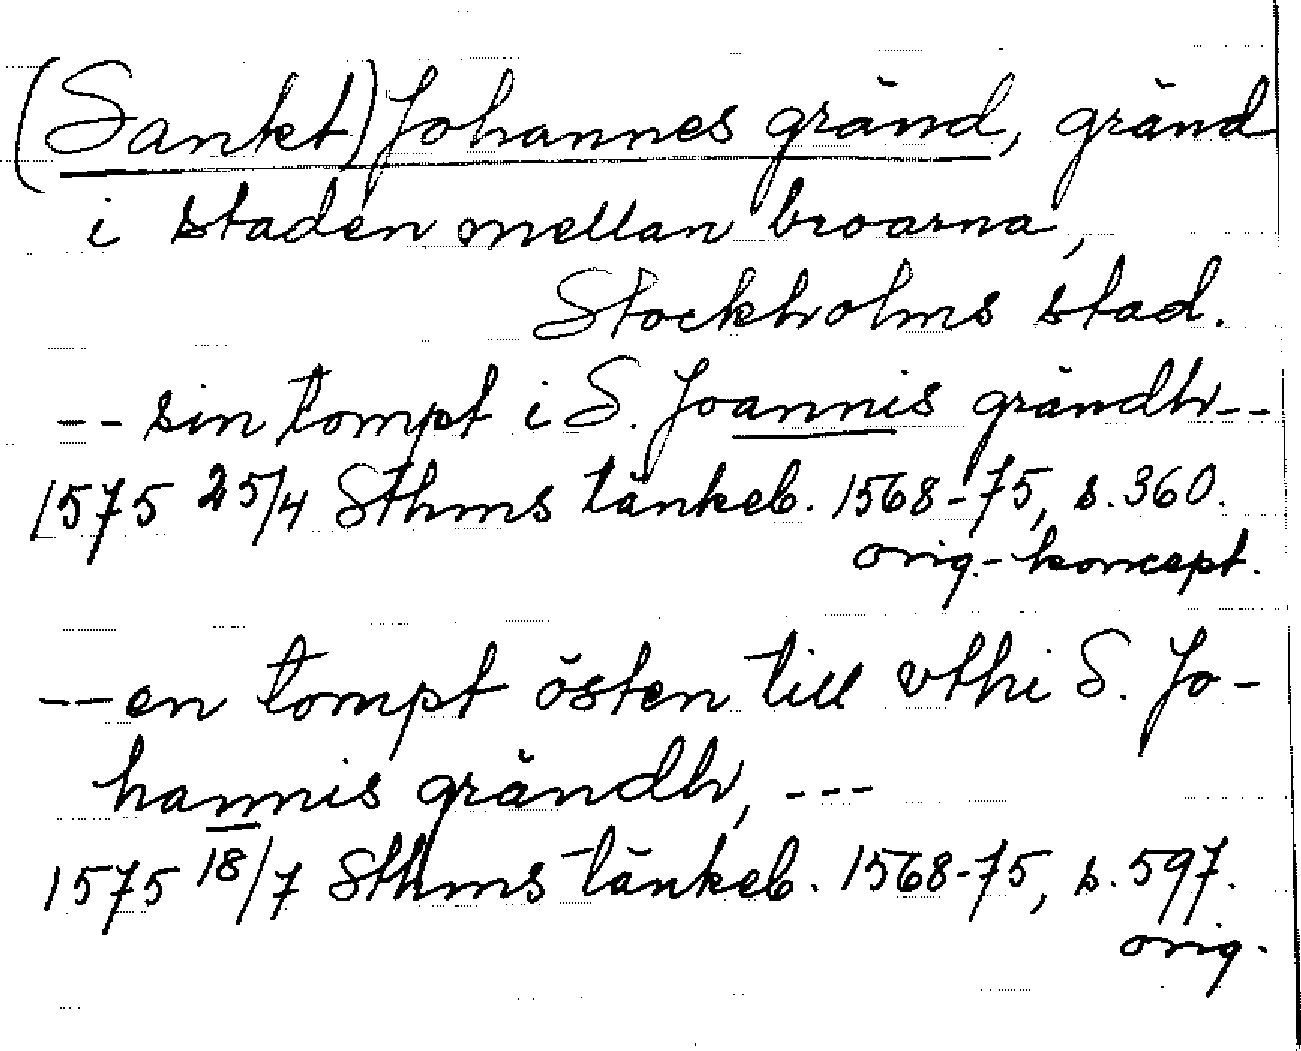 (Sankt) Johannes gränd, gränd
i staden mellan broarna,
Stockholms stad.
-- sin tompt i S. Joannis grändh --
1575 25/4 Sthms tänkeb. 1568-75, s. 360.
orig.-koncept.
-- en tompt östen till vthi S. Jo-
hannis grändh, ---
1575 18/7 Sthms tänkeb. 1568-75, s. 597.
orig.